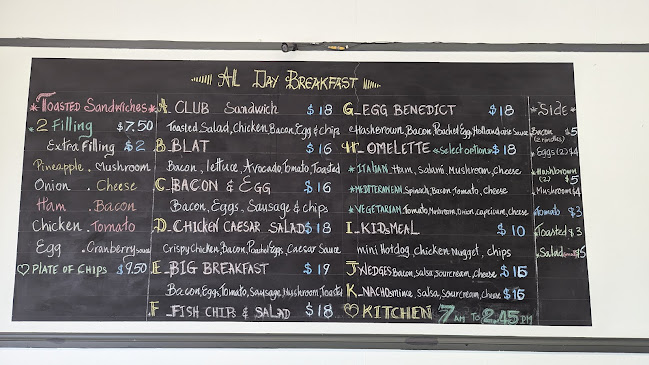 AL DAY BREAKFAST
TOASTED SANDWICHES
2 Filling $7.50
Extra filling $2
Pineapple . Mushroom
Onion . Cheese
Ham . Bacon
Chicken . Tomato
Egg . Cranberry sauce
PLATE OF CHIPS $9.50
A CLUB Sandwich $18
Toasted, Salad, Chicken, Bacon, Egg & chips
B BLAT $16
Bacon, lettuce, Avocado, Tomato, Toasted
C BACON & EGG $16
Bacon, Eggs, Sausage & chips
D CHICKEN CAESAR SALAD $18
Crispy Chicken, Bacon, Poached Eggs, Caesar Sauce
E BIG BREAKFAST $19
Bacon, Eggs, Tomato, Sausage, Mushroom, Toasted
F FISH CHIPS & SALAD $18
G EGG BENEDICT $18
Hasbrown, Bacon, Poached Egg, Hollandaise Sauce
H OMELETTE *select option* $18
*ITALIAN Ham, Salami, Mushroom, Cheese
*MEDITERANEAN Spinach, Bacon, Tomato, Cheese
*VEGETARIAN Tomato, Mushroom, Onion, capsicum, cheese
I KIDS MEAL $10
mini Hotdog, chicken Nugget, chips
J WEDGES Bacon, salsa, sourcream, cheese $15
K NACHOS mince, Salsa, Sourcream, cheese $15
KITCHEN 7 AM TO 2.45 PM
*Side*
Bacon $5
Eggs (2) $4
Hashbrown (2) $5
Mushroom $4
Tomato $3
Toasted $3
Salad $5